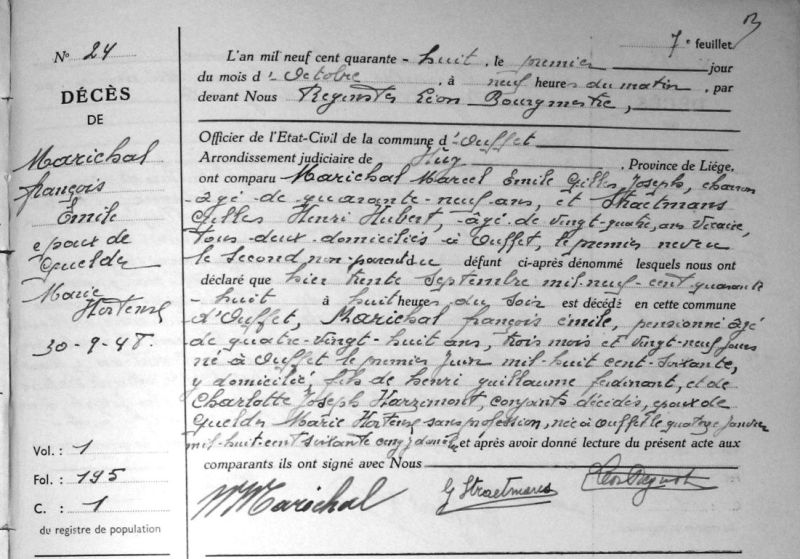 B
7e feuillet
N° 24
DÉCÈS
DE
Marichal
françois
Emile
epoux de
Guelden
Marie
Hortense
30-9-48.
Vol. : 1
Fol. : 195
C. : 1
du registre de population
L'an mil neuf cent quarante - huit, le premier jour
du mois d'Octobre, à neuf heures du matin, par
devant Nous Léon Bourgmestre,
Officier de l'Etat-Civil de la commune d'Ouffet
Arrondissement judiciaire de Huy, Province de Liége,
ont comparu Marichal Marcel Emile Gilles Joseph, charron
âgé de quarante-neuf ans, et Straetmans
Gilles Henri Hubert, âgé de vingt-quatre ans Vicaire,
tous deux domiciliés à Ouffet, le premier neveu
le second non parent du défunt ci-après dénommé lesquels nous ont
déclaré que hier trente septembre mil-neuf-cent quarante
- huit à huit heures du soir est décédé en cette commune
d'Ouffet, Marichal françois émile, pensionné âgé
de quatre-vingt-huit ans, trois mois et vingt-neuf jours
né à Ouffet le premier Juin mil-huit cent-soixante,
y domicilié, fils de henri guillaume ferdinant, et de
Charlotte Joseph Harzimont, conjoints décédés, epoux de
Guelden Marie Hortense sans profession, née à Ouffet le quatorze Janvier
mil-huit-cent soixante cinq et après avoir donné lecture du présent acte aux
comparants ils ont signé avec Nous
M Marichal
G Straetmans